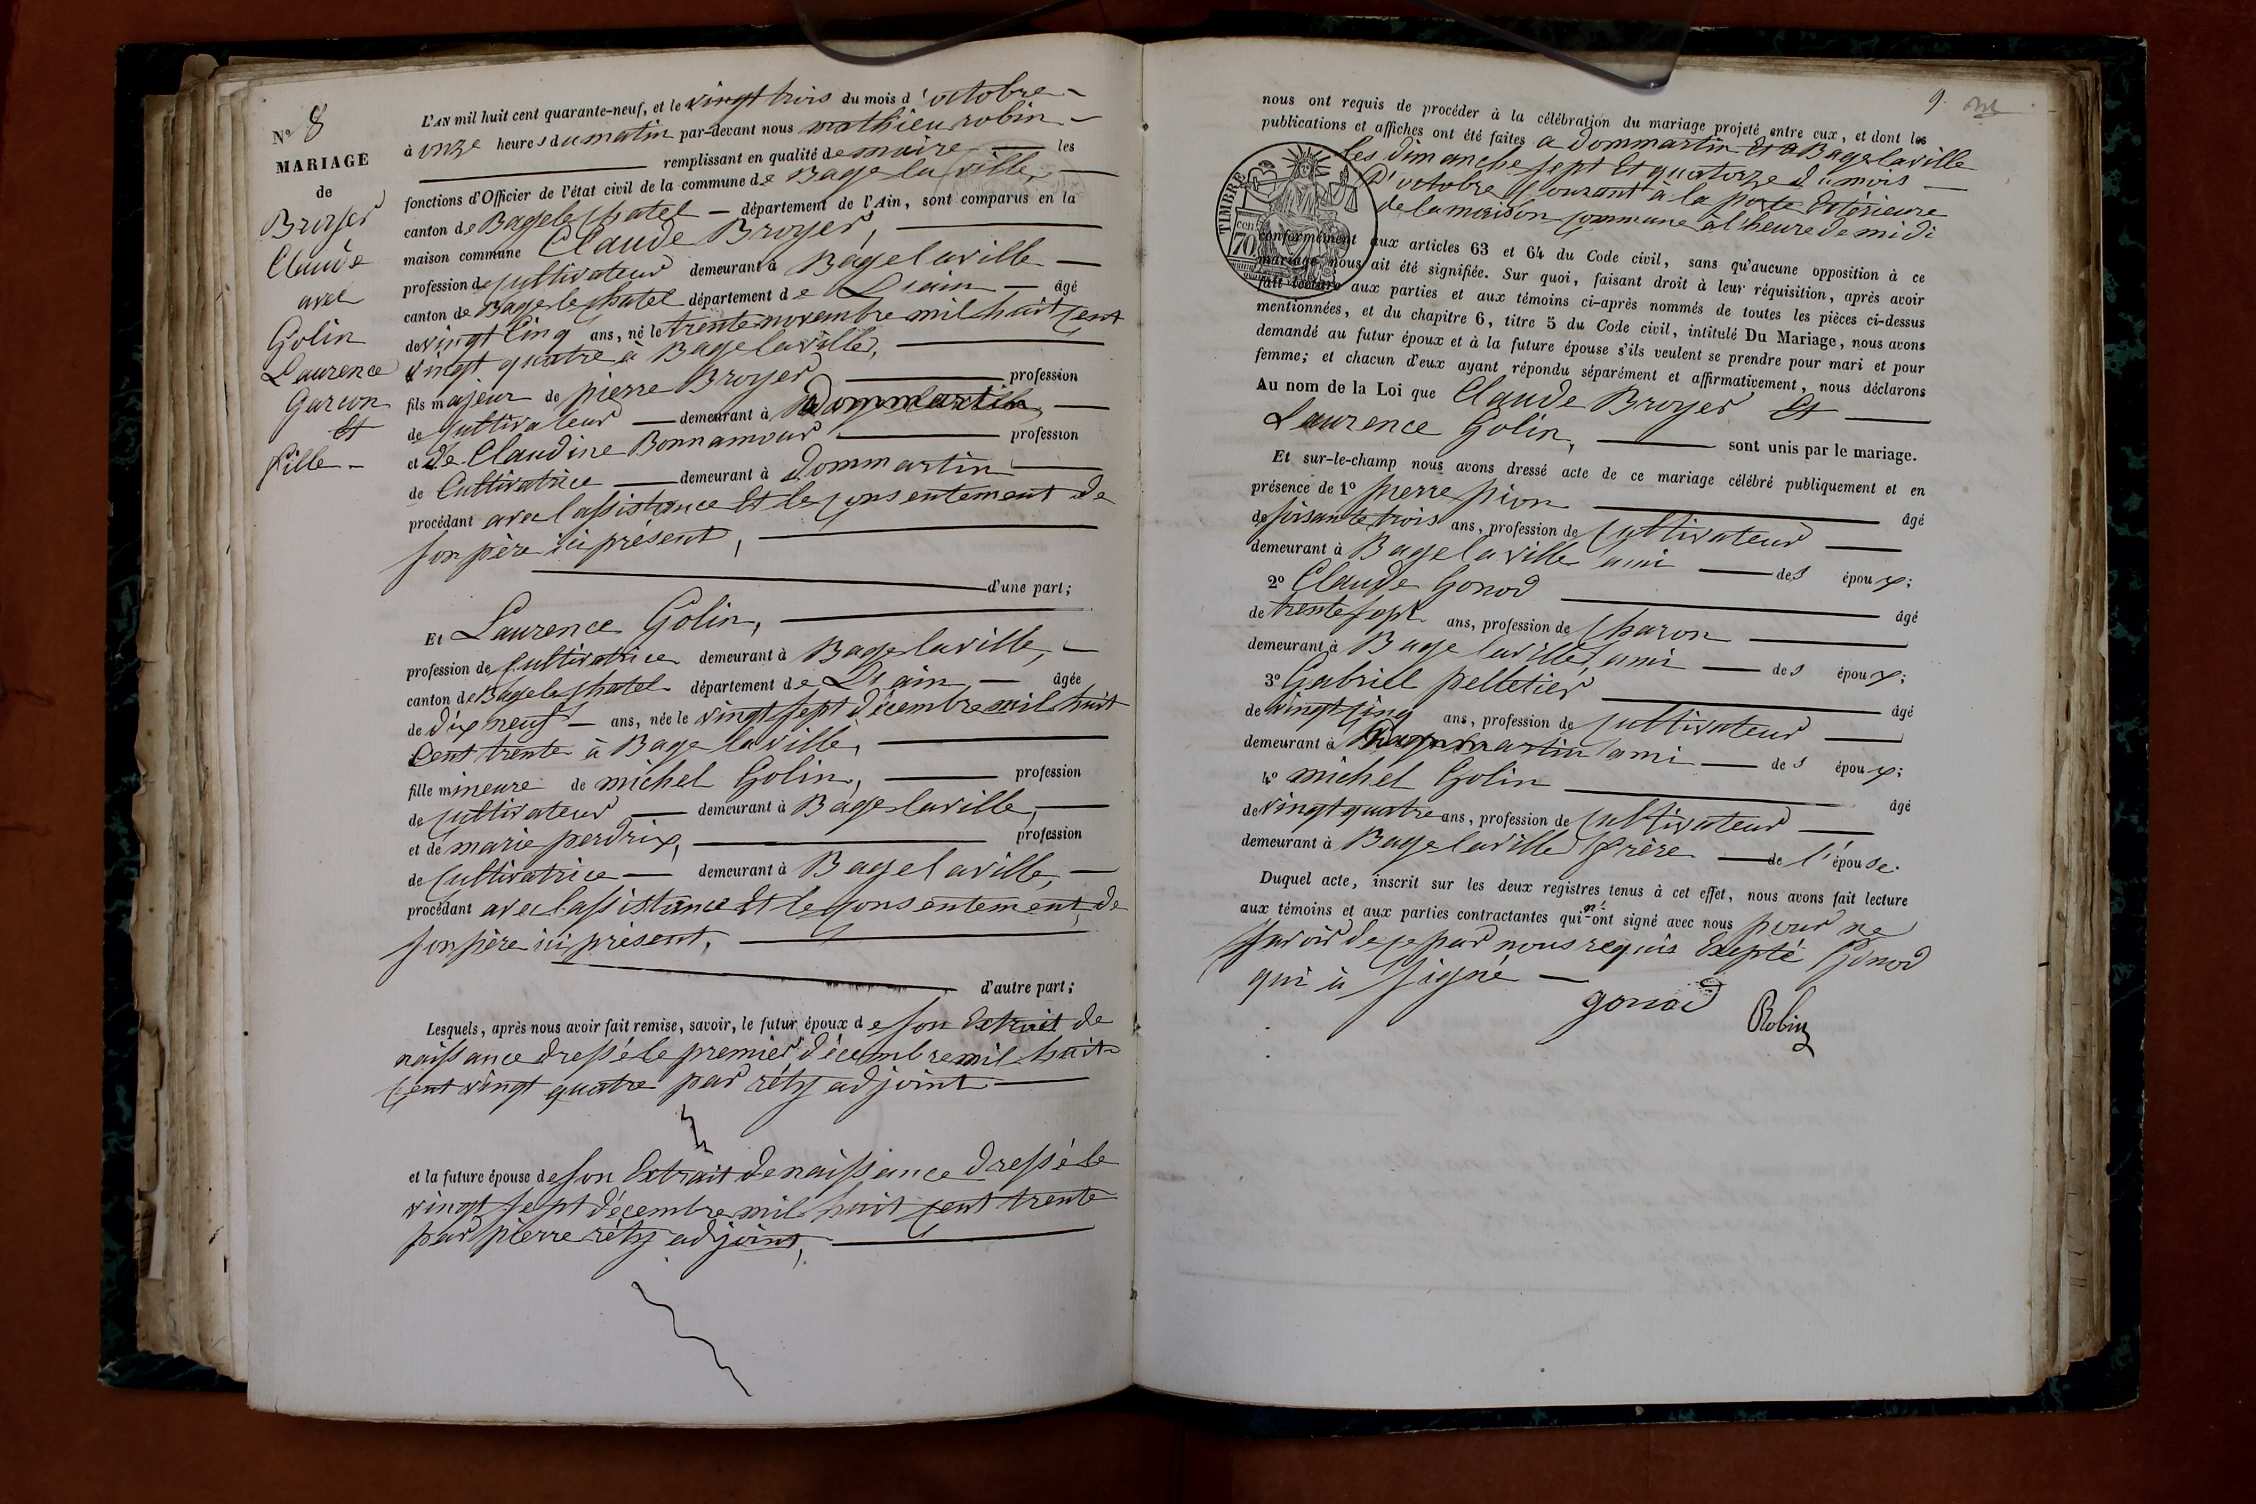 N° 8
MARIAGE
de
Broyer
Claude
avec
Golin
Laurence
Garcon
et
fille -
L'AN mil huit cent quarante-neuf, et le vingt trois du mois d'octobre -
à onze heures du matin par-devant nous mathieu robin -
remplissant en qualité de maire les
fonctions d'Officier de l'état civil de la commune de Bage la ville
canton de Bage le chatel — département de l'Ain, sont comparus en la
maison commune Claude Broyer,
profession de cultivateur demeurant à Bage la ville —
canton de Bage le chatel département de L'ain — âgé
de vingt cinq ans, né le trente novembre mil huit cent
vingt quatre à Bage la ville,
fils majeur de pierre Broyer profession
de cultivateur — demeurant à Dommartin —
et de Claudine Bonnamour profession
de Cultivatrice — demeurant à Dommartin
procédant avec l'assistance et le consentement de
son père ici présent,
d'une part;
Et Laurence Golin,
profession de Cultivatrice demeurant à Bage la ville, -
canton de Bage le chatel département de L'ain — âgée
de dix neuf — ans, née le vingt sept décembre mil huit
cent trente à Bage la ville,
fille mineure de michel Golin, profession
de cultivateur — demeurant à Bage la ville,
et de marie perdrix, profession
de cultivatrice — demeurant à Bage la ville, —
procédant avec l'assistance et le consentement de
son père ici présent,
d'autre part;
Lesquels, après nous avoir fait remise, savoir, le futur époux de son extrait de
naissance dressé le premier décembre mil huit
cent vingt quatre par réty adjoint —
et la future épouse de son extrait de naissance dressé le
vingt sept décembre mil huit cent trente
par pierre réty adjoint,
9
nous ont requis de procéder à la célébration du mariage projeté entre eux, et dont les
publications et affiches ont été faites a dommartin et a Bage la ville
les dimanche sept et quatorze du mois —
d'octobre courant à la porte extérieure
de la maison commune à l'heure de midi
TIMBRE
70 cen.
conformément aux articles 63 et 64 du Code civil, sans qu'aucune opposition à ce
mariage nous ait été signifiée. Sur quoi, faisant droit à leur réquisition, après avoir
fait lecture aux parties et aux témoins ci-après nommés de toutes les pièces ci-dessus
mentionnées, et du chapitre 6, titre 5 du Code civil, intitulé Du Mariage, nous avons
demandé au futur époux et à la future épouse s'ils veulent se prendre pour mari et pour
femme; et chacun d'eux ayant répondu séparément et affirmativement, nous déclarons
Au nom de la Loi que Claude Broyer et
Laurence Golin, sont unis par le mariage.
Et sur-le-champ nous avons dressé acte de ce mariage célébré publiquement et en
présence de 1° pierre pion âgé
de soisante trois ans, profession de Cultivateur
demeurant à Bage la ville ami — des époux;
2° Claude Gonod âgé
de trente sept ans, profession de charon
demeurant à Bage la ville, ami — des époux;
3° Gabriel pelletier âgé
de vingt cinq ans, profession de cultivateur
demeurant à Dommartin ami — des époux;
4° michel Golin âgé
de vingt quatre ans, profession de cultivateur
demeurant à Bage la ville frère — de l'épouse.
Duquel acte, inscrit sur les deux registres tenus à cet effet, nous avons fait lecture
aux témoins et aux parties contractantes qui n'ont signé avec nous pour ne
savoir de ce par nous requis Excpté Gonod
qui à signé —
gonod
Robin